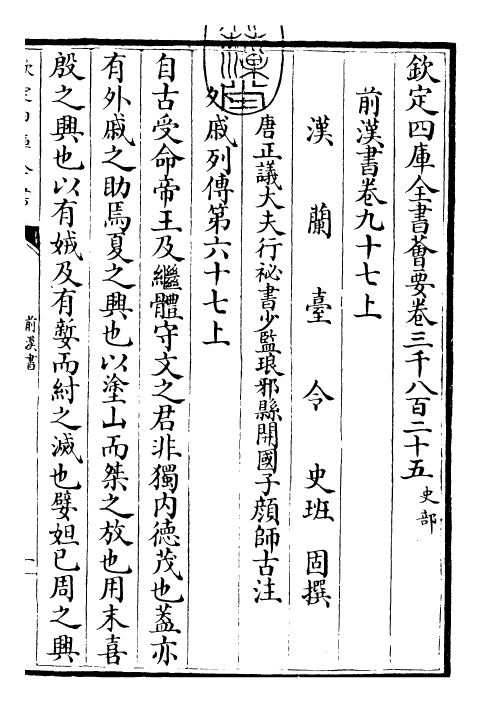 欽定四庫全書薈要卷三千八百二十五 史部
前漢書卷九十七上
漢蘭臺令史班固撰
唐正議大夫行祕書少監琅邪縣開國子顏師古注
外戚列傳第六十七上
自古受命帝王及繼體守文之君非獨內德茂也蓋亦
有外戚之助焉夏之興也以塗山而桀之放也用末喜
殷之興也以有娀及有㜪而紂之滅也嬖妲已周之興
欽定四庫全書
前漢書
一